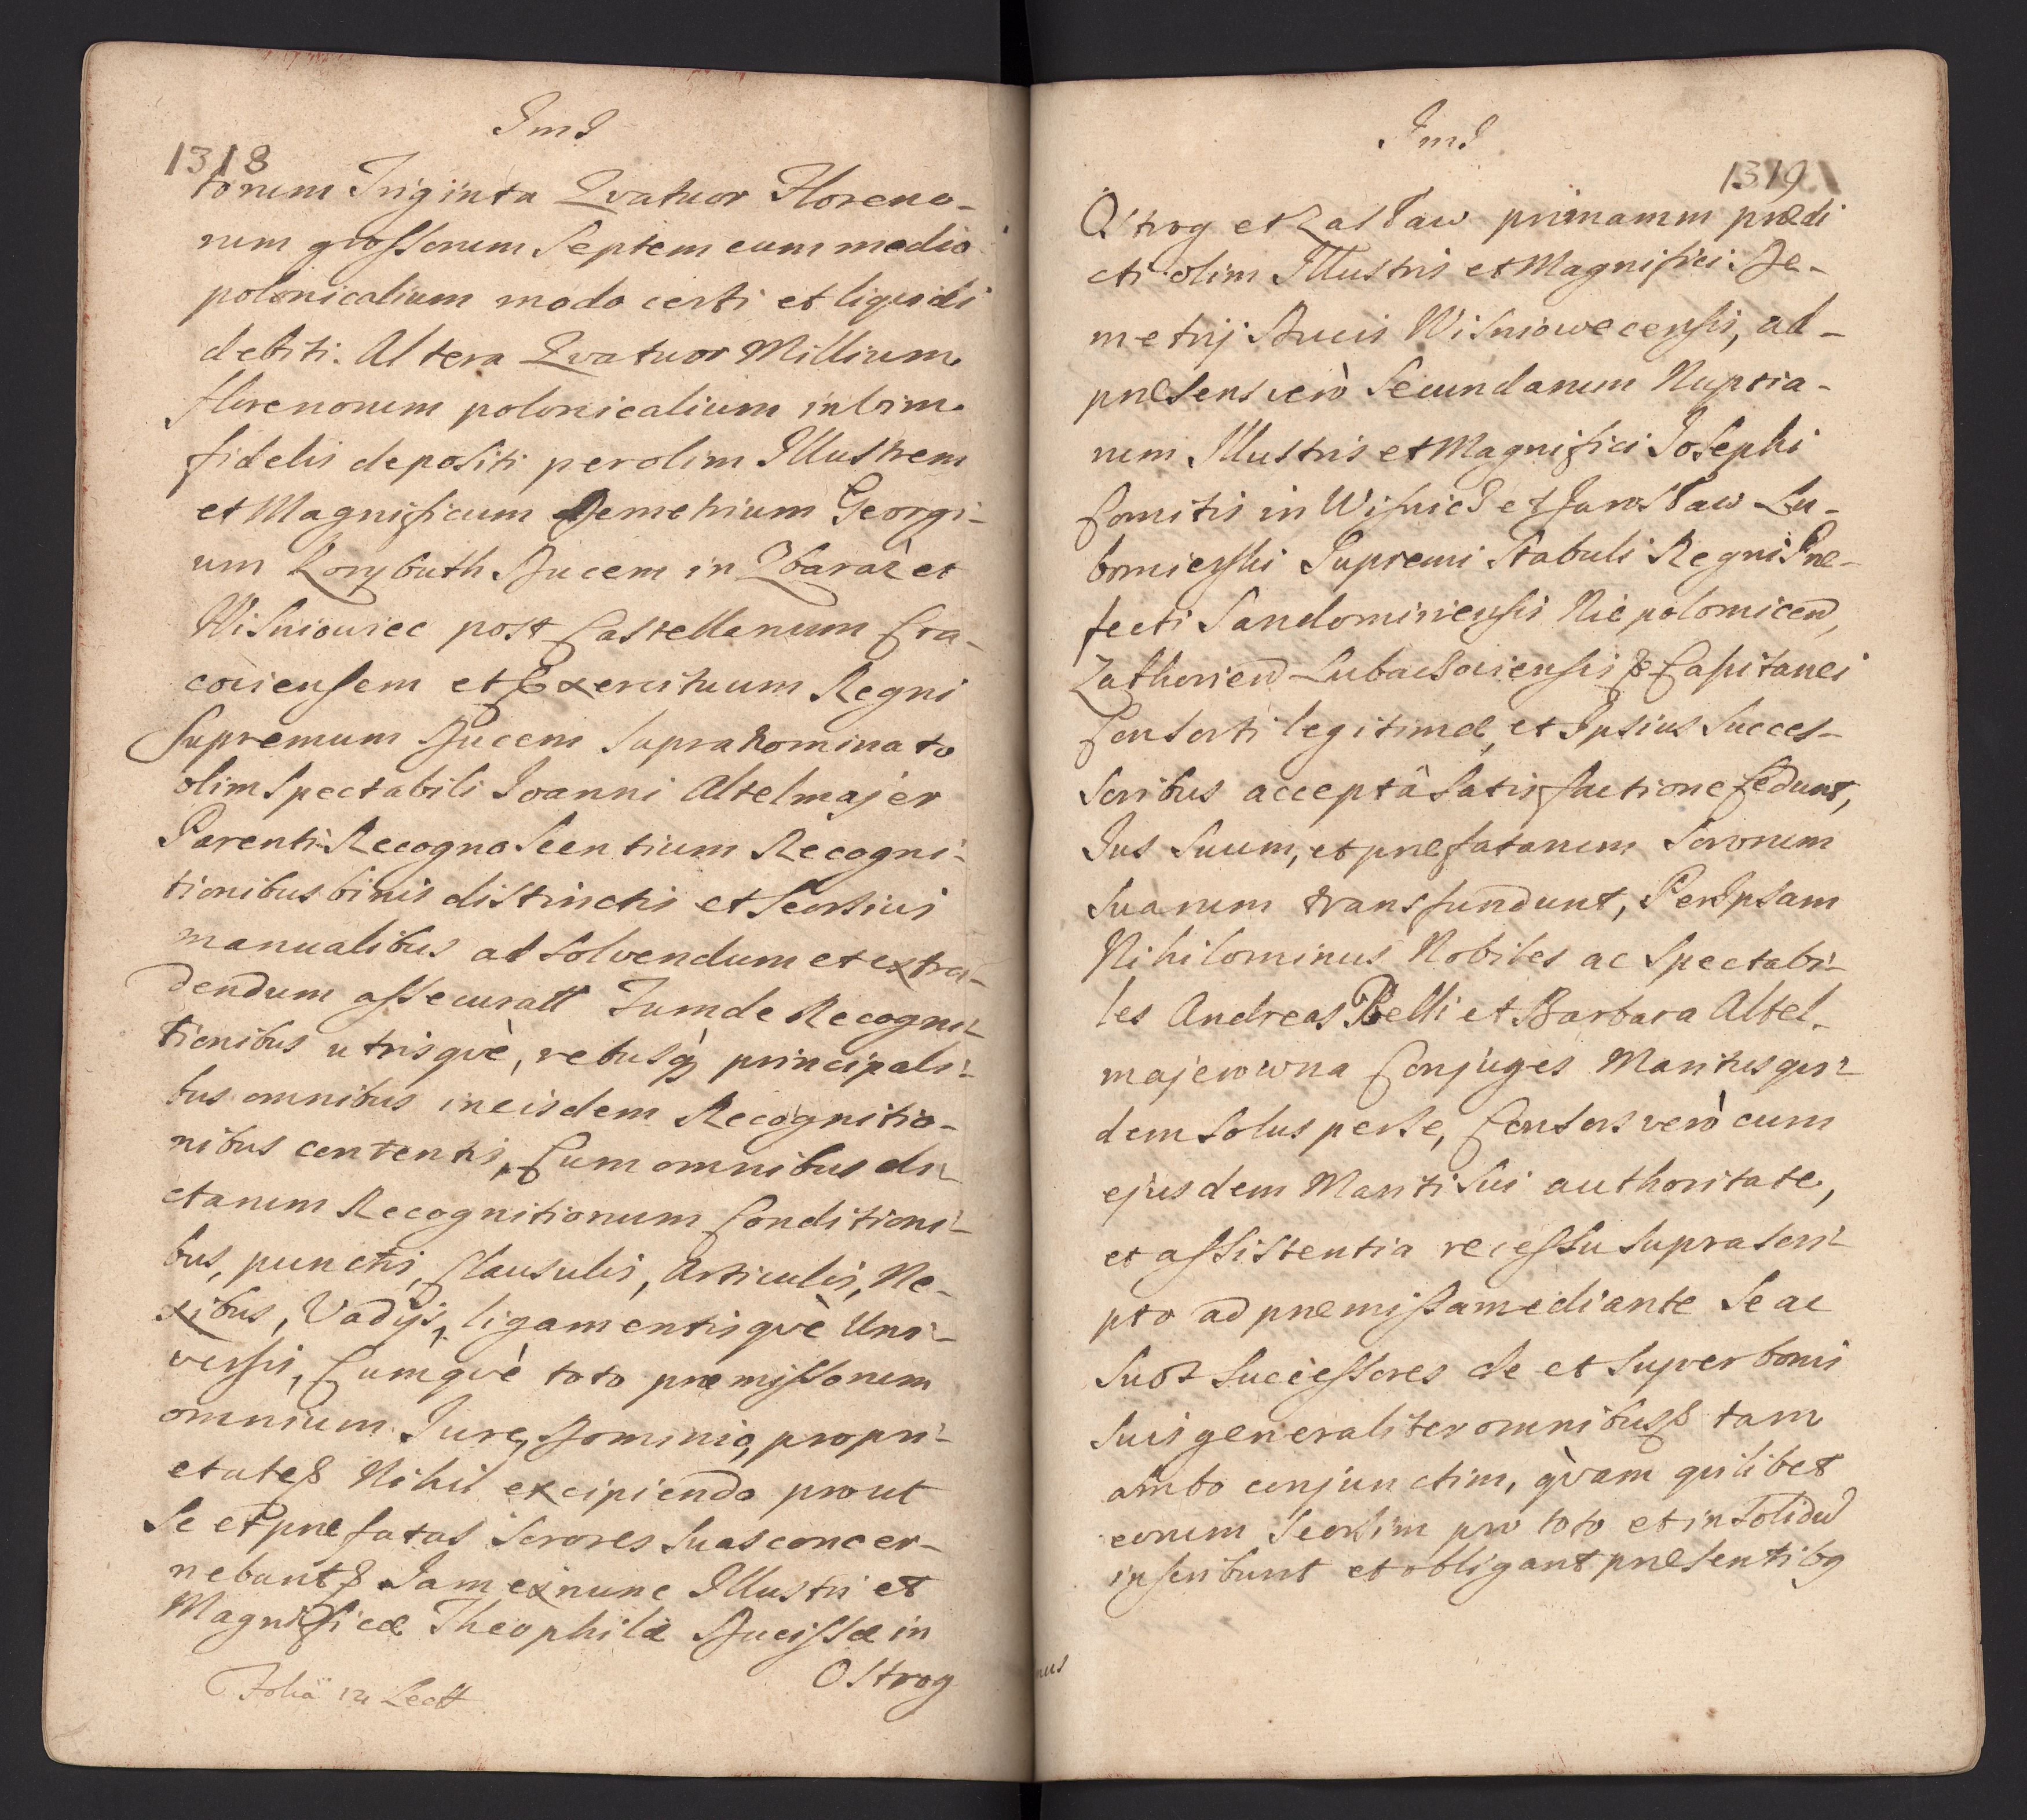 1318
torum Triginta Qvatuor Floreno-
rum grossorum Septem cum medio
polonicalium modo certi et liquidi
debiti. Altera Qvatuor Millium
florenorum polonicalium in vim
fidelis depositi per olim Illustrem
et Magnificum Demetrium Georgi-
um Korybuth Ducem in Zbaraż et
Wiśniowiec post Castellanum Cra-
coviensem et Exercituum Regni
Supremum Ducem Supranominato
olim Spectabili Joanni Altelmajer
Parenti Recognoscentium Recogni-
tionibus binis distinctis et Seorsivis
manualibus ad solvendum et extra-
dendum assecuratt Tum de Recogni-
tionibus utrisqvè, rebusq; principali-
bus omnibus in eisdem Recognitio-
nibus contentis, Cum omnibus di-
ctarum Recognitionum Conditioni-
bus, punctis, Clausulis, Articulis, Ne-
xibus, Vadijs, ligamentisqvè Uni-
versis, Cumqvè toto præmissorum
omnium Jure, Dominio, propri-
etate & Nihil excipiendo prout
Se et præfatas Sorores Suas concer-
nebant & Jam ex nunc Illustri et
Magnificæ Theophilæ Ducissæ in
Ostrog
1319
Ostrog et Zasław primarum prædi
cti olim Illustris et Magnifici De-
metrij Ducis Wiśniowecensis, ad-
præsens verò Secundarum Nuptia-
rum Illustris et Magnifici Josephi
Comitis in Wiśnicz et Jarosław Lu-
bomierski Supremi Stabuli Regni Præ-
fecti Sandomiriensis Niepolomicen,
Zathorien Lubaczoviensis & Capitanei
Consorti legitimæ, et Ipsius Succes-
soribus acceptâ Satisfactione Cedunt,
Jus Suum, et præfatarum Sororum
Suarum transfundunt, Per Ipsam
Nihilominus Nobiles ac Spectabi-
les Andreas Belli et Barbara Altel-
majerowna Conjuges Maritus qvi-
dem Solus per se, Consors verò cum
ejusdem Mariti Sui authoritate,
et assistentia recessu Suprascri-
pto ad præmissa mediante Se ac
Suos Successores de et Super bonis
Suis generaliter omnibus & tam
ambo conjunctim, qvam quilibet
eorum Seorsim pro toto et in Solidu
inscribunt et obligant præsentibq